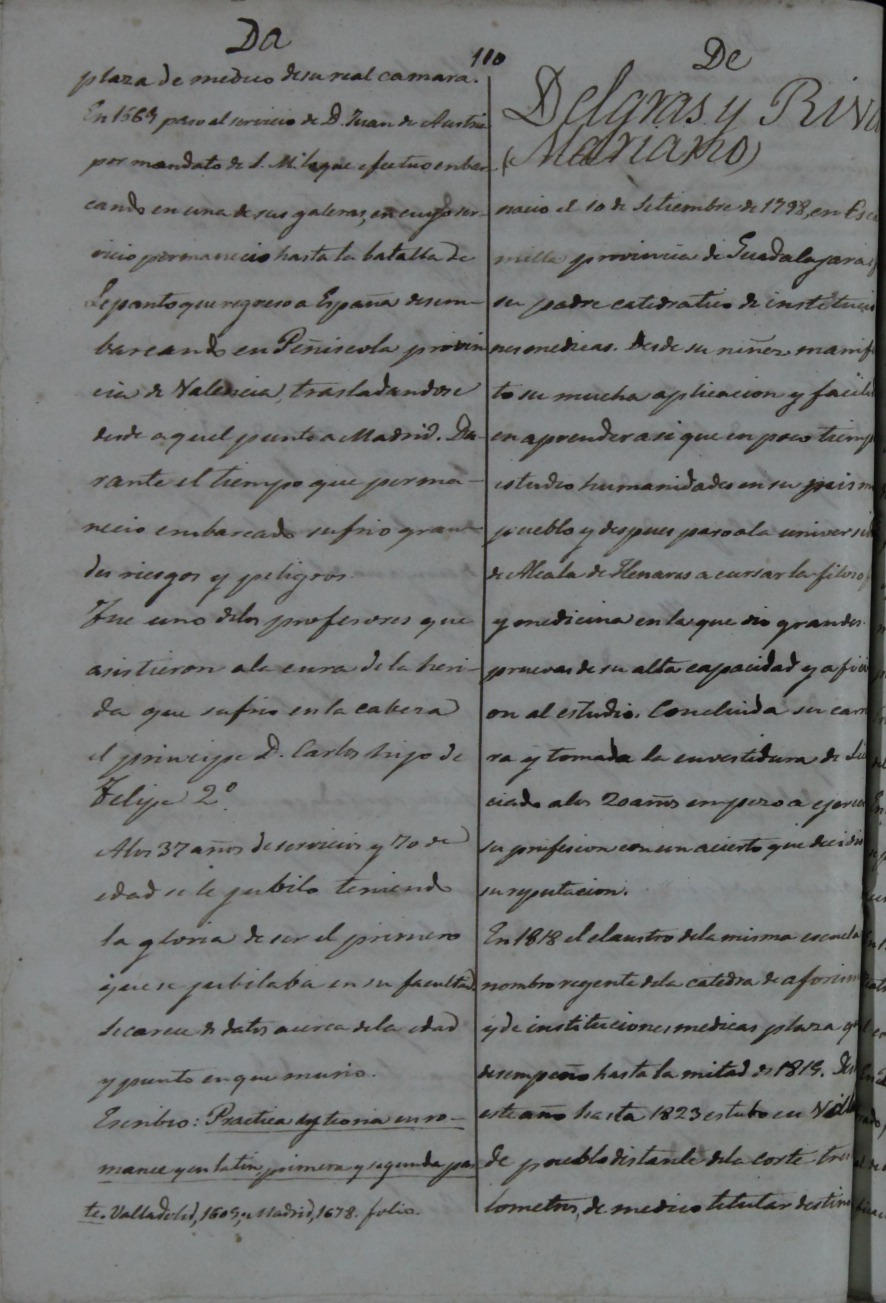 Da
110
De
plaza de medico de su real camara.
En 1569 paso al servicio de D. Juan de Austria
por mandato de S. M. lo que efectuo embar-
cando en una de sus galeras, en cuyo ser-
vicio permanecio hasta la batalla de
Lepanto que regreso a España desem-
barcando en Peñiscola provin
cia de Valencia, trasladandose
desde aquel punto a Madrid. Du-
rante el tiempo que perma-
necio embarcado sufrio gran-
des riesgos y peligros.
Fue uno delos profesores que
asistieron ala cura de la heri-
da que sufrio en la cabeza
el principe D. Carlos hijo de
Felipe 2º
Alos 37 años de servicios y 70 de
edad se le jubilo teniendo
la gloria de ser el primero
que se jubilaba en su facultad
Se carece de datos acerca dela edad
y punto en que murio.
Escribio: Practica y teoria en ro-
mance y en latin, primera y segunda par
te. Valladolid, 1605, y Madrid, 1678. folio.
Delgras y Riva
(Mariano)
nacio el 10 de Setiembre de 1798, en Esca
milla provincia de Guadalajara
su padre catedratico de institucio
nes medicas. Desde su niñez manifes
to su mucha aplicacion y facili
en aprender asi que en poco tiemp
estudio humanidades en su mism
pueblo y despues paso ala universi
de Alcala de Henares a cursar la filoso
y medicina en la que dio grandes
pruevas de su alta capacidad y afici
on al estudio. Concluida su carr
ra y tomada la investidura de Li
ciado alos 20 años empezo a ejerce
su profesion con un acierto que decidio
su reputacion.
En 1818 el claustro dela misma escuela
nombro regente dela catedra de aforism
y de instituciones medicas plaza q
desempeño hasta la mitad de 1819. Des
este año hasta 1823 estubo en
de pueblo distante dela corte tres
lometros, de medico titular destino